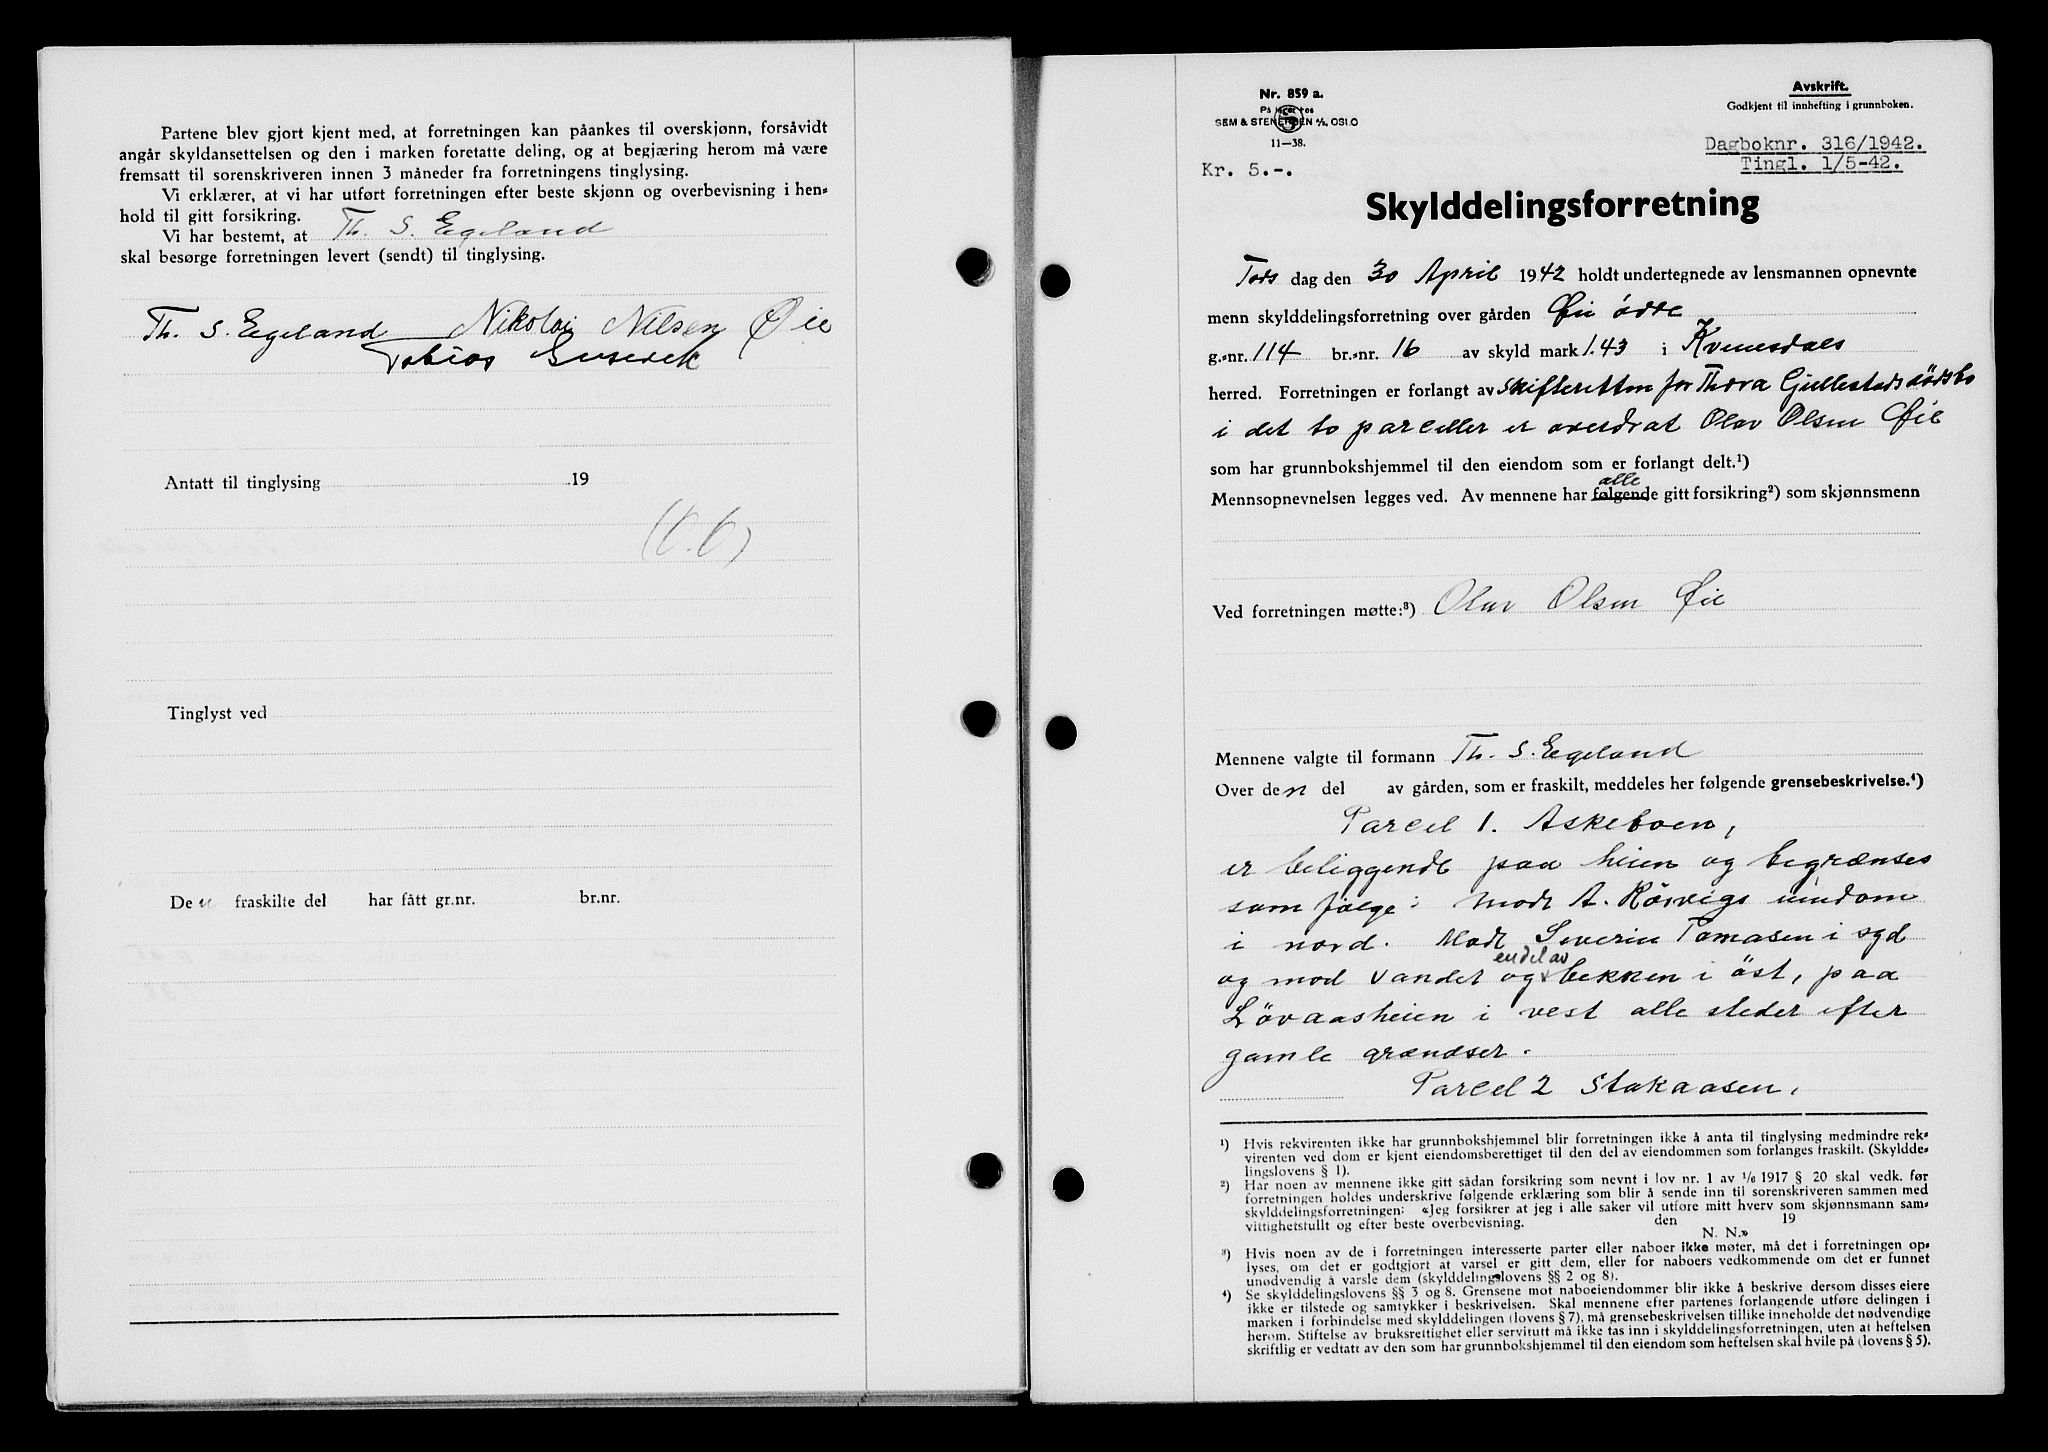 Partene blev gjort kjent med, at forretningen kan påankes til overskjønn, forsåvidt
angår skyldansettelsen og den i marken foretatte deling, og at begjæring herom må være
fremsatt til sorenskriveren innen 3 måneder fra forretningens tinglysing.
Vi erklærer, at vi har utført forretningen efter beste skjønn og overbevisning i hen-
hold til gitt forsikring.
Vi har bestemt, at Th. S. Egeland
skal besørge forretningen levert (sendt) til tinglysing.
Th. S. Egeland Nikolai Nilsen Øie
Tobias
Antatt til tinglysing 19
Tinglyst ved
De n fraskilte del har fått gr.nr. br.nr.
Nr. 859 a.
På lager hos
SEM & STENERSEN A/S, OSLO
11—38.
Kr. 5.-.
Avskrift.
Godkjent til innhefting i grunnboken.
Dagboknr. 316/1942.
Tingl. 1/5-42.
Skylddelingsforretning
Tors dag den 30 April 1942 holdt undertegnede av lensmannen opnevnte
menn skylddelingsforretning over gården Øie ödre
g.-nr. 114 br.-nr. 16 av skyld mark 1.43 i Kvinesdals
herred. Forretningen er forlangt av skifteretten for Thora Gjellestads dödsbo
i det to parceller er overdrat Olav Olsen Øie
som har grunnbokshjemmel til den eiendom som er forlangt delt.¹)
alle
Mennsopnevnelsen legges ved. Av mennene har følgende gitt forsikring²) som skjønnsmenn
Ved forretningen møtte:³) Olav Olsen Øie
Mennene valgte til formann Th. S. Egeland
Over den del av gården, som er fraskilt, meddeles her følgende grensebeskrivelse.⁴)
Parcel 1. Askeboen,
er beliggende paa heien og begrænses
som følge: Modt A. Rörvigs eiendom
i nord. Modt Severin Tomasen i syd
en del av
og mod vandet og bekken i öst, paa
Lövaasheien i vest alle steder efter
gamle grændser.
Parcel 2 Stakaasen,
¹) Hvis rekvirenten ikke har grunnbokshjemmel blir forretningen ikke å anta til tinglysing medmindre rek-
virenten ved dom er kjent eiendomsberettiget til den del av eiendommen som forlanges fraskilt. (Skyldde-
lingslovens § 1).
²) Har noen av mennene ikke gitt sådan forsikring som nevnt i lov nr. 1 av 1/6 1917 § 20 skal vedk. før
forretningen holdes underskrive følgende erklæring som blir å sende inn til sorenskriveren sammen med
skylddelingsforretningen: «Jeg forsikrer at jeg i alle saker vil utføre mitt hverv som skjønnsmann sam-
vittighetsfullt og efter beste overbevisning. den 19
N. N.»
³) Hvis noen av de i forretningen interesserte parter eller naboer ikke møter, må det i forretningen op-
lyses, om det er godtgjort at varsel er gitt dem, eller for naboers vedkommende om det er funnet
unødvendig å varsle dem (skylddelingslovens §§ 2 og 8).
⁴) Se skylddelingslovens §§ 3 og 8. Grensene mot naboeiendommer blir ikke å beskrive dersom disses eiere
ikke er tilstede og samtykker i beskrivelsen. Skal mennene efter partenes forlangende utføre delingen i
marken i forbindelse med skylddelingen (lovens § 7), må grensebeskrivelsen tillike inneholde det nødvendige
herom. Stiftelse av bruksrettighet eller servitutt må ikke tas inn i skylddelingsforretningen, uten at heftelsen
skriftlig er vedtatt av den som har grunnbokshjemmel til den eiendom som heftelsen skal hvile på (lovens § 5).